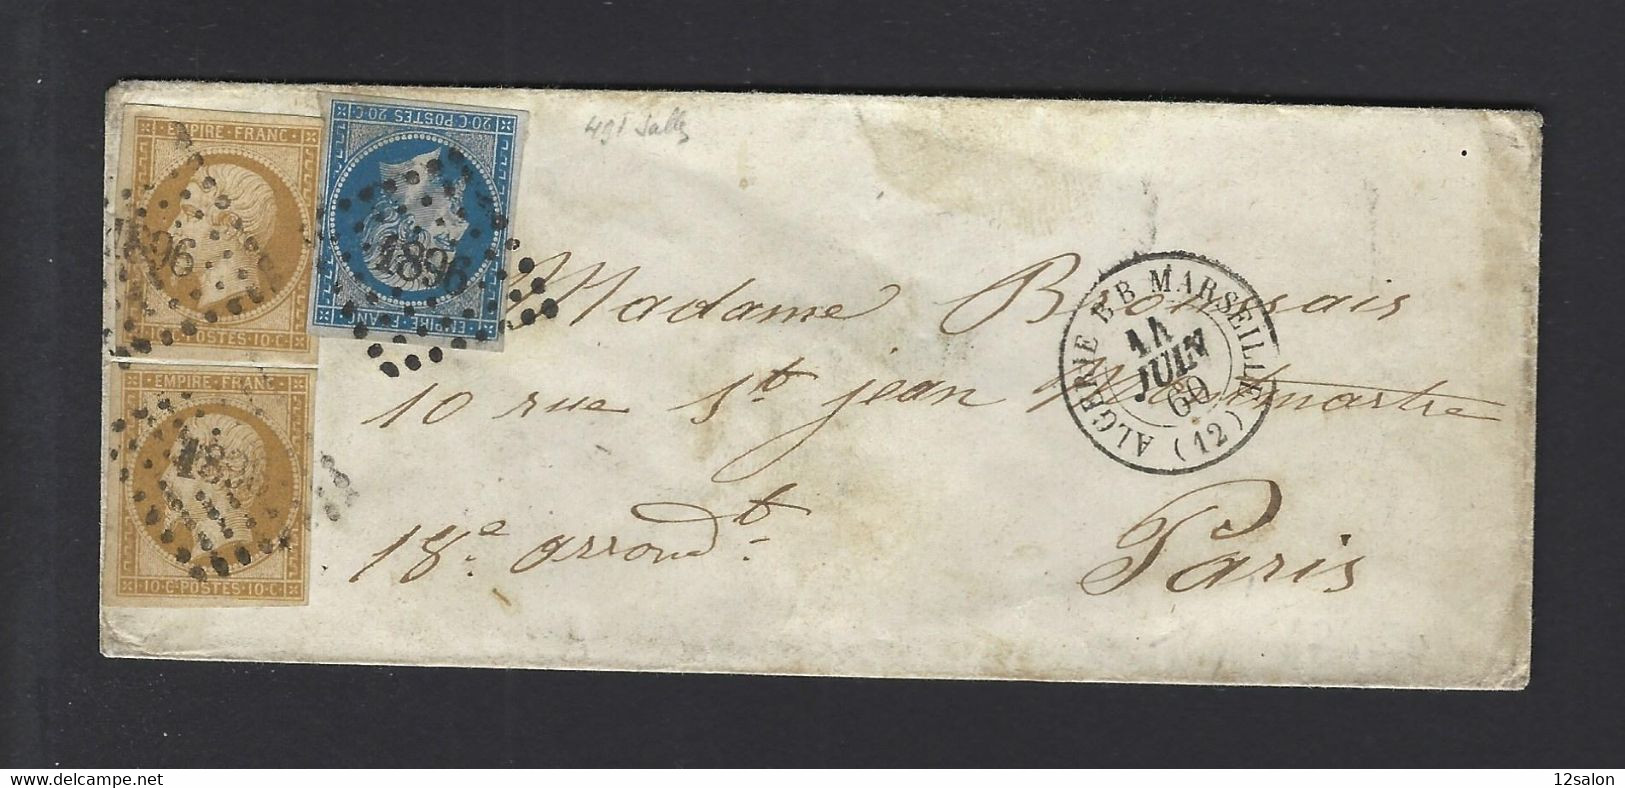 EMPIRE · FRANC
1896
POSTES · 10 · C ·
20 · C · POSTES 20 · C ·
1896
EMPIRE · FRANC
EMPIRE · FRANC
10 · C · POSTES · 10 · C ·
ALGERIE BB MARSEILLE (12)
JUIN
60
Madame Broussais
10 rue St jean Montmartre
18e arrondt
Paris
www.delcampe.net
12salon